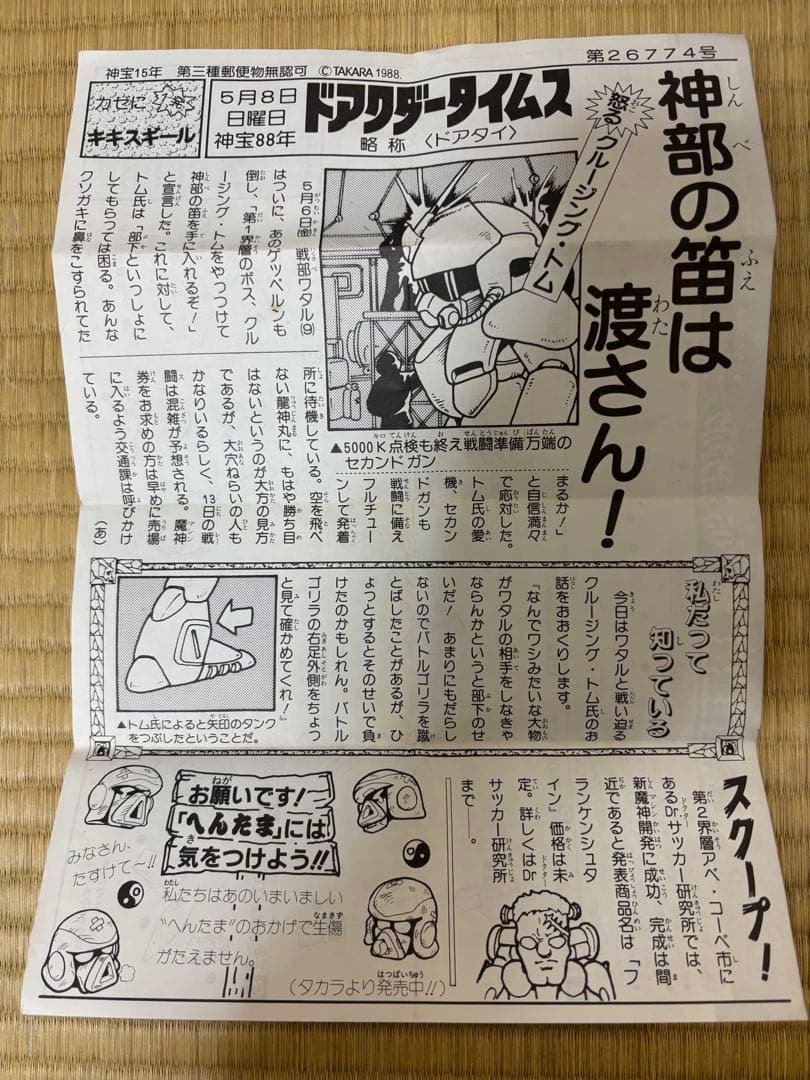 第26774号
神宝15年 第三種郵便物無認可 ©TAKARA 1988.
カゼに一発
キキスギール
5月8日
日曜日
神宝88年
ドアクダータイムス
略称〈ドアタイ〉
神部の笛は
渡さん!
怒るクルージング・トム
5月6日(金)、戦部ワタル(9)
はついに、あのゲッペルンも
倒し、「第1界層のボス、クル
ージング・トムをやっつけて
神部の笛を手に入れるぞ!」
と宣言した。これに対して、
トム氏は「部下といっしょに
してもらっては困る。あんな
クソガキに鼻をこすられてた
まるか!」
と自信満々
で応対した。
トム氏の愛
機、セカン
ドガンも
戦闘に備え
フルチュー
ンして発着
所に待機している。空を飛べ
ない龍神丸に、もはや勝ち目
はないというのが大方の見方
であるが、大穴ねらいの人も
かなりいるらしく、13日の戦
闘は混雑が予想される。魔神
券をお求めの方は早めに売場
に入るよう交通課は呼びかけ
ている。 (あ)
▲5000K点検も終え戦闘準備万端の
セカンドガン
私だって
知っている
今日はワタルと戦い迫る
クルージング・トム氏のお
話をおおくりします。
『なんでワシみたいな大物
がワタルの相手をしなきゃ
ならんかというと部下のせ
いだ! あまりにもだらし
ないのでバトルゴリラを蹴
とばしたことがあるが、ひ
ょっとするとそのせいで負
けたのかもしれん。バトル
ゴリラの右足外側をちょっ
と見て確かめてくれ!』
▲トム氏によると矢印のタンク
をつぶしたということだ。
スクープ!
第2界層アベ・コーベ市に
あるDrサッカー研究所では、
新魔神開発に成功、完成は間
近であると発表商品名は「フ
ランケンシュタ
イン』価格は未
定。詳しくはDr
サッカー研究所
まで──。
お願いです!
「へんたま」には
気をつけよう!!
みなさん、
たすけて〜!!
私たちはあのいまいましい
"へんたま"のおかげで生傷
がたえません。
(タカラより発売中!!)